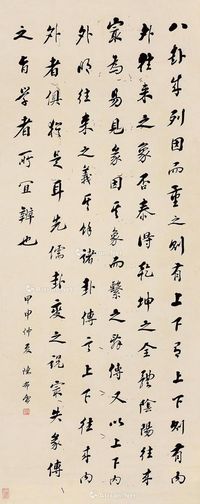 八卦成列因而重之則有上下有上下則有內
外往來之象否泰得乾坤之全體陰陽往來
最為易見象因其象而繫之辭傳又以上下內
外明往來之義其餘諸卦傳言上下往來內
外者俱猶是耳先儒卦變之說最失象傳
之旨學者所宜辨也
甲申仲夏